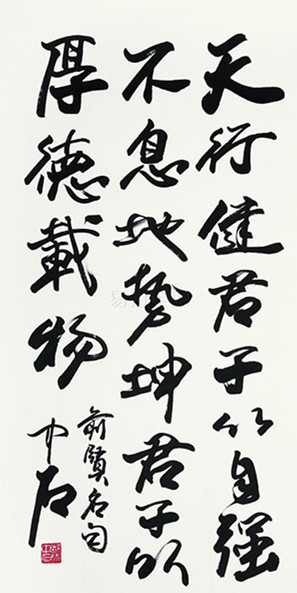 天行健君子以自强
不息地勢坤君子以
厚德載物
前賢名句
中石